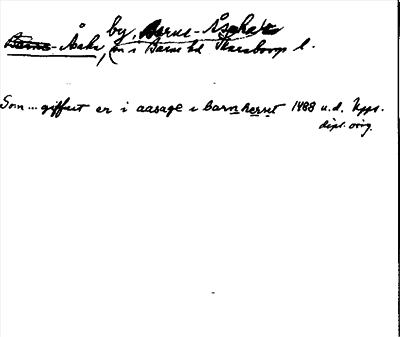 by, Barne-Åsaka
Barne-Åsaka, sn i Barne hd Skaraborgs l.
Som... giffuit er i aasage i barnhernt 1488 u.d. Upps.
dipl. orig.